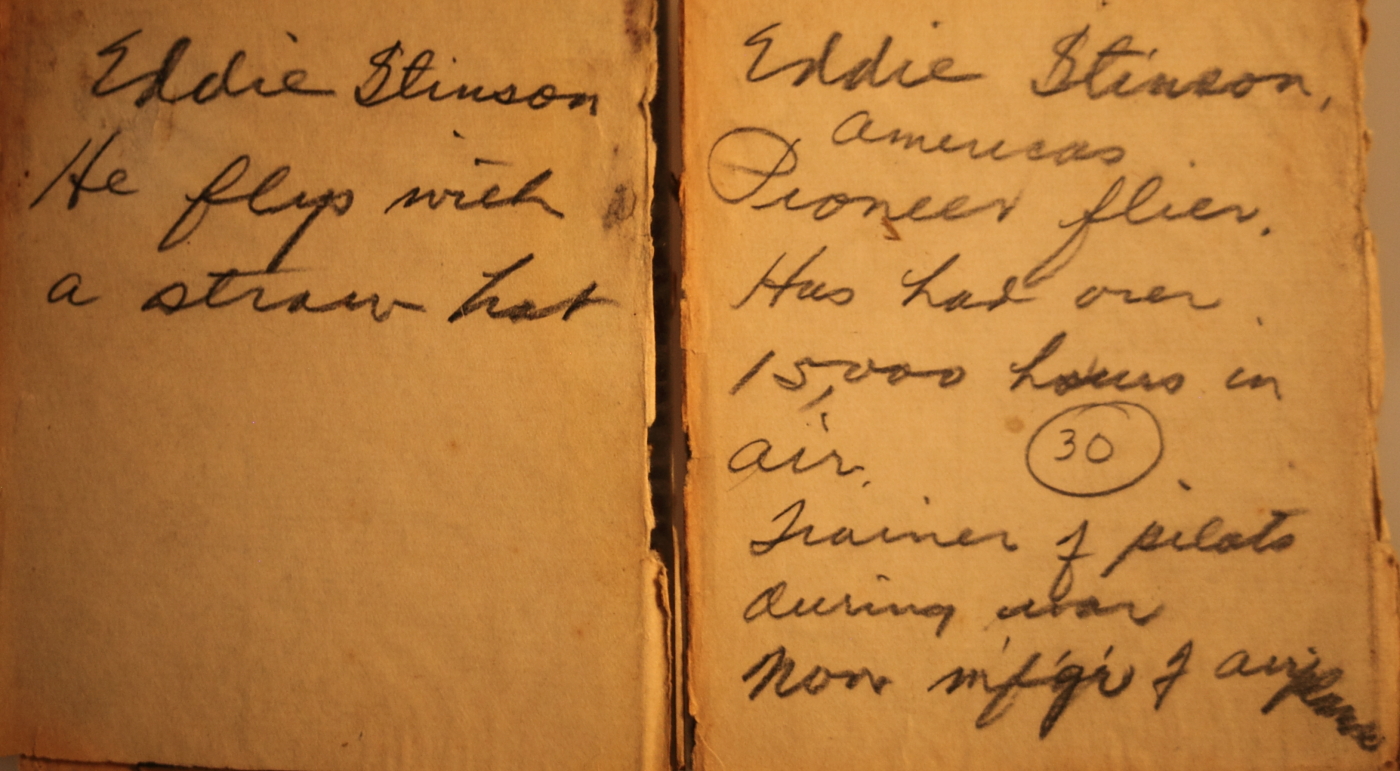 Eddie Stinson
He flys with
a straw hat
Eddie Stinson,
Americas
Pioneer flier.
Has had over
15,000 hours in
air.
30
Trainer of pilots
during war
Now m'f'g'r of airplane